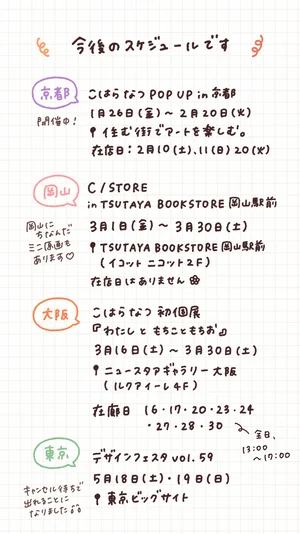 今後のスケジュールです
京都
開催中！
こはらなつ POP UP in 京都
1月26日(金)〜 2月20日(火)
住む街でアートを楽しむ。
在店日：2月10(土)、11(日)20(火)
岡山
岡山に
ちなんだ
ミニ原画も
あります♡
C/STORE
in TSUTAYA BOOKSTORE 岡山駅前
3月1日(金)〜 3月30日(土)
TSUTAYA BOOKSTORE 岡山駅前
(イコットニコット2F)
在店日はありません
大阪
こはらなつ 初個展
『わたしと もちこともちお』
3月16日(土)〜 3月30日(土)
ニュースタアギャラリー大阪
(ルクアイーレ4F)
在廊日 16・17・20・23・24
・27・28・30
全日、
13:00
〜17:00
東京
キャンセル待ちで
出れることに
なりました
デザインフェスタ vol.59
5月18日(土)・19日(日)
東京ビッグサイト